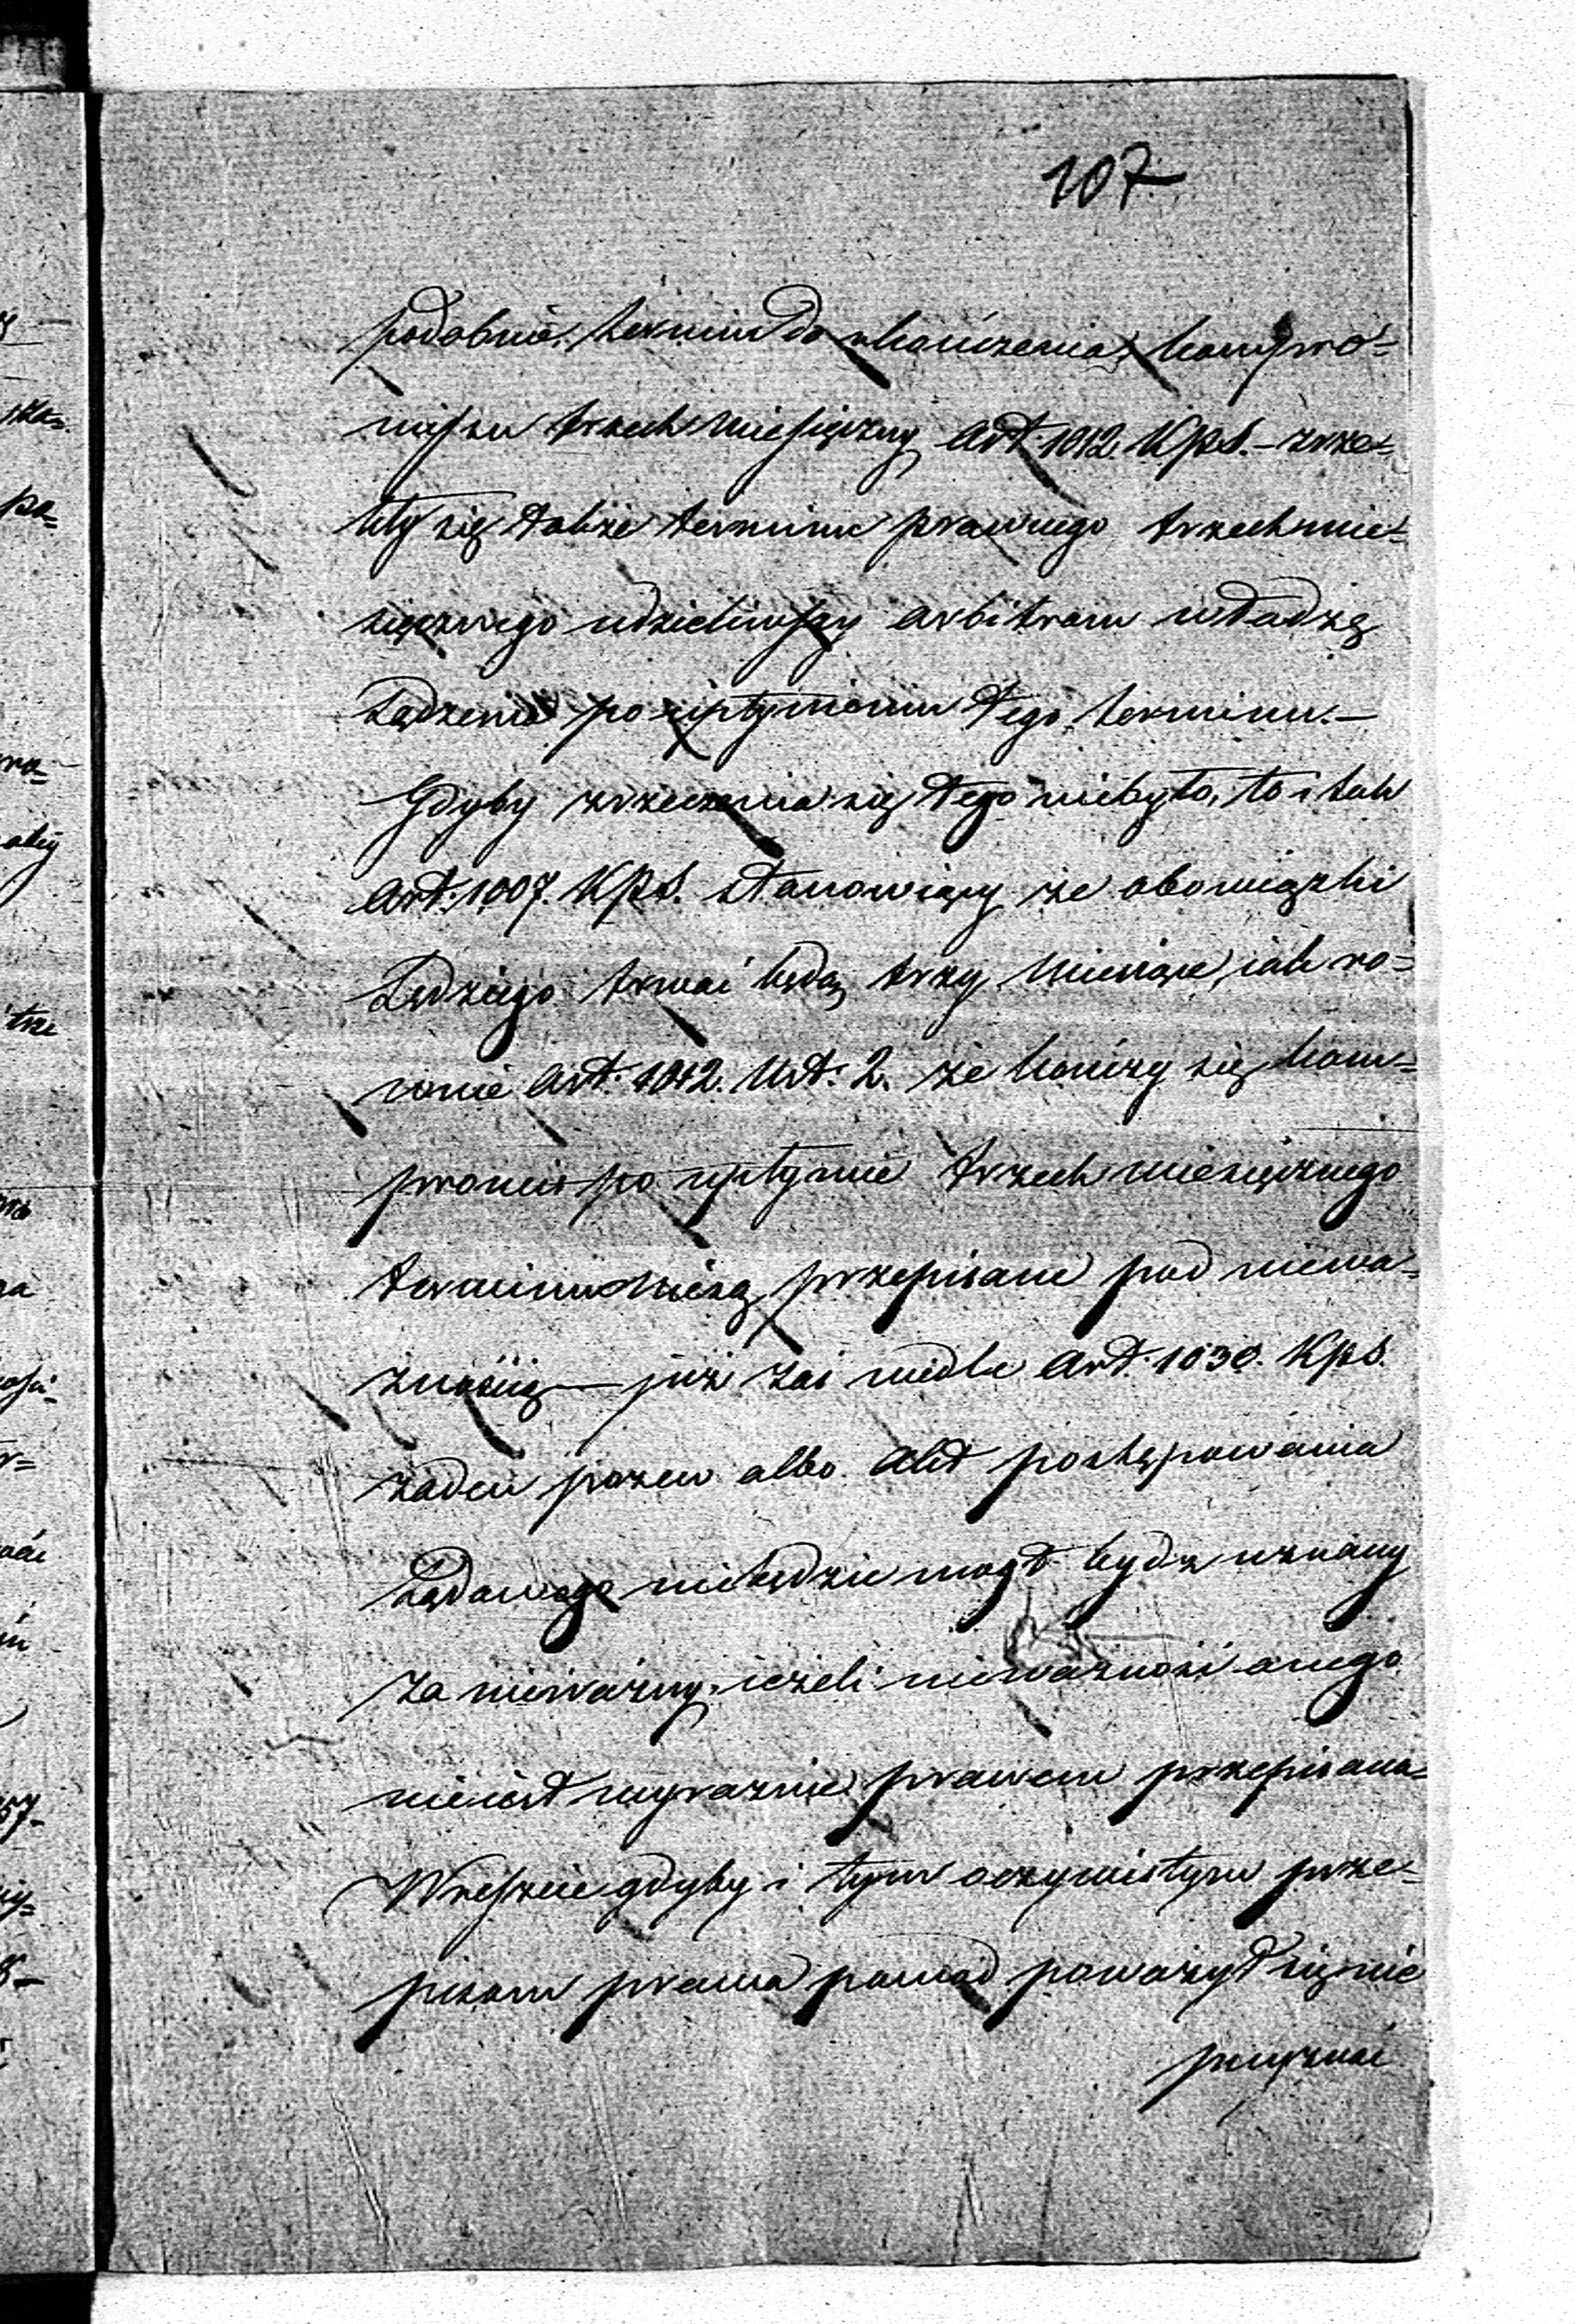 107
podobnie, termin do ukończenia kompro=
missu trzech miesięczny Art. 1012. Kps. – zrze=
kły się także terminu prawnego trzechmie=
sięcznego udzieliwszy arbitrom władzę
Sądzenia po upłynieniu tego terminu. –
Gdyby zrzeczenia się tego niebyło, to i tak
Art. 1007. Kps. stanowiący że obowiązki
Sędziego trwać będą trzy miesiące, iak ro=
wnie Art. 1012. Ust: 2. że kończy się kom=
promis po upłynie trzech miesięcznego
terminu niesą przepisane pod niewa=
żnością – już zaś wedle Art. 1030. Kps.
żaden pozew albo Akt postępowania
Sądowego niebędzie mógł bydź uznany
za nieważny, ieżeli nieważność onego
nieiest wyraźnie prawem przepisana
Wreszcie gdyby i tym oczywistym prze=
pisom prawa powod poważył się nie
przyznać